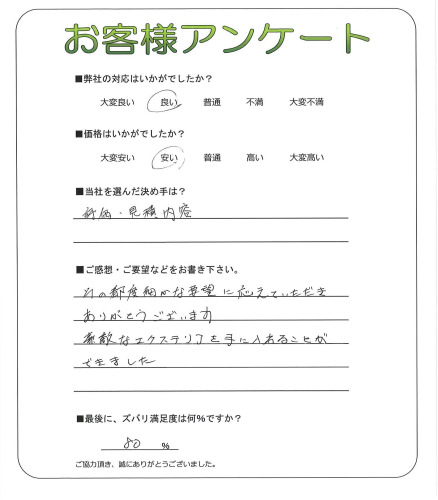 お客様アンケート
■弊社の対応はいかがでしたか？
大変良い 良い 普通 不満 大変不満
■価格はいかがでしたか？
大変安い 安い 普通 高い 大変高い
■当社を選んだ決め手は？
評価・見積内容
■ご感想・ご要望などをお書き下さい。
その都度細かな要望に応えていただき
ありがとうございます
素敵なエクステリアを手に入れることが
できました
■最後に、ズバリ満足度は何％ですか？
80 ％
ご協力頂き、誠にありがとうございました。